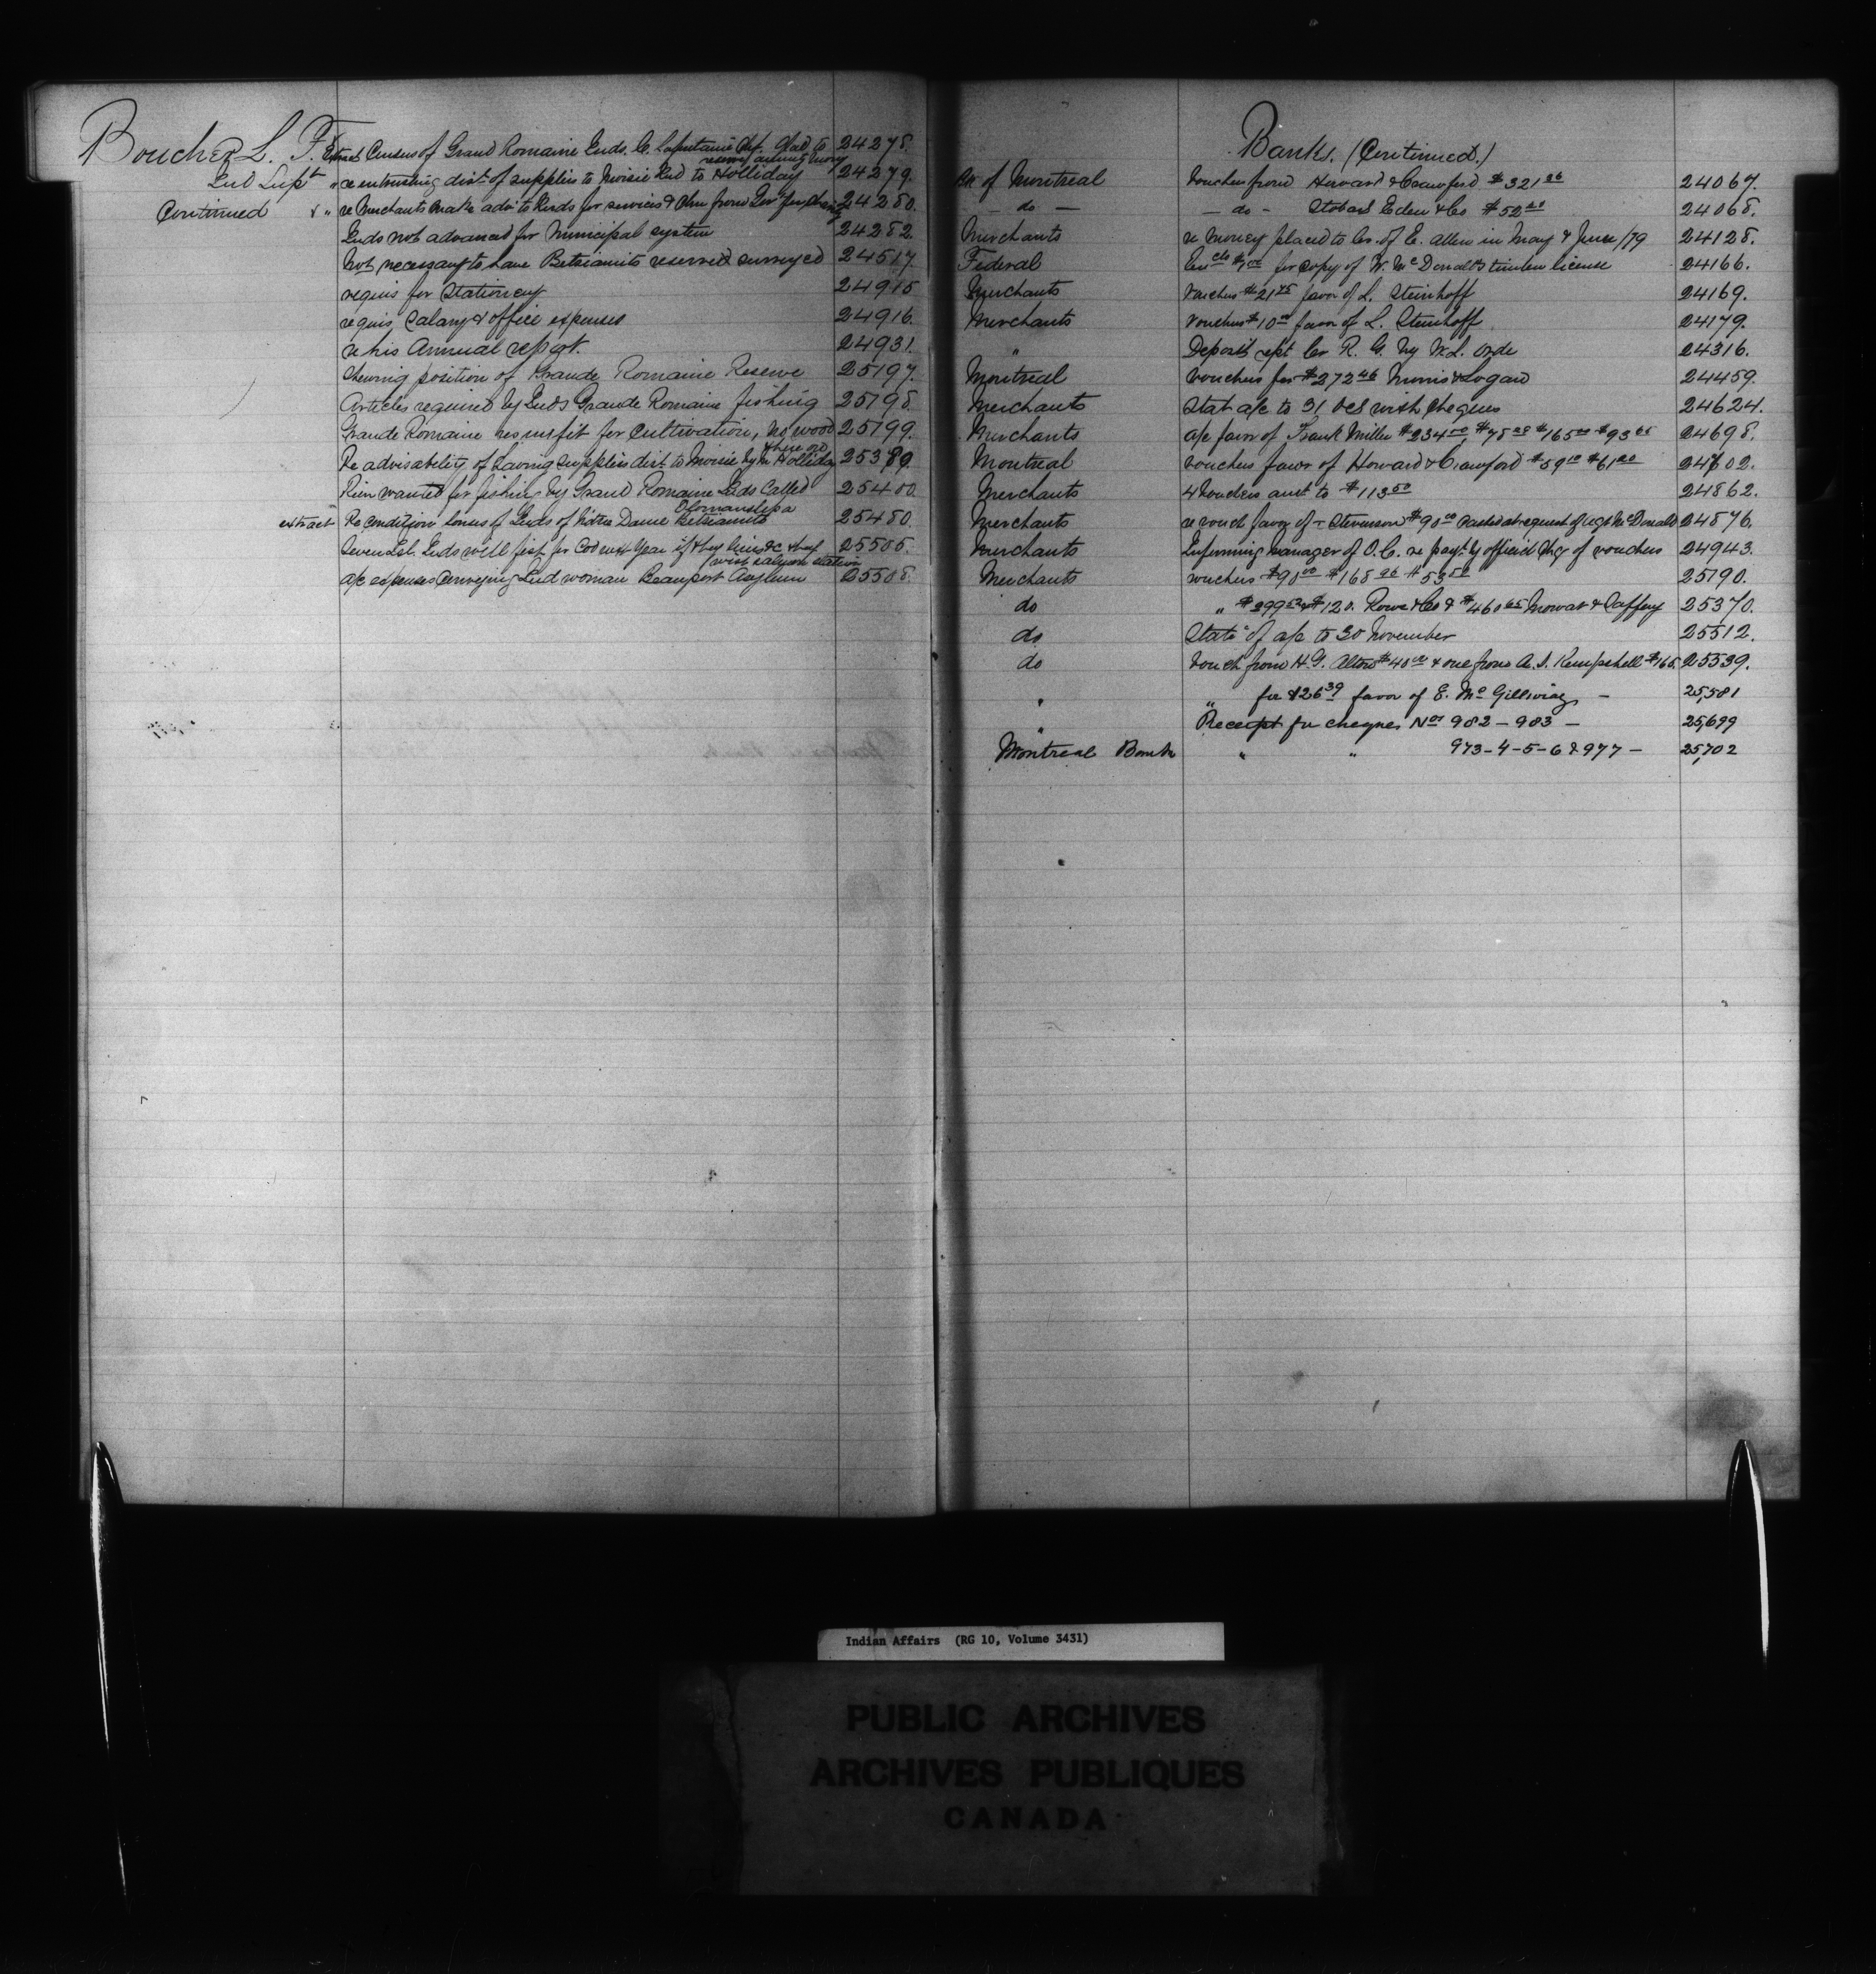 Boucher L. F. Extract Census of Grand Romaine Inds. C. Lafontaine Chf. Glad to 24278.
Ind Supt " re entrusting dist. of supplies to Moisie Ind to Holliday 24279.
Continued & " re Merchants make adv. to Inds for services & then from Gov 24280.
Inds not advanced for Municipal system 24282.
Not necessary to have Betsiamits reserved surveyed 24517.
requis for Stationery 24915
requis Salary & office expenses 24916.
re his Annual report. 24931.
Shewing position of Grande Romaine Reserve 25197.
Articles required by Inds Grande Romaine fishing 25198.
Grande Romaine res unfit for Cultivation, no wood 25199.
there no
Re advisability of having supplies dist. to Moisie by Mr Holliday 25389.
River wanted for fishing by Grand Romaine Inds Called 25400.
Olomanshepa
extract Re condition houses of Inds of Notre Dame Betsiamits 25480.
Seven Isl. Inds will fish for Cod next Year if they lines &c they 25505.
wish salmon station
a/c expenses Conveying Ind woman Beauport Asylum 25508.
Banks. (Continued.)
Bk of Montreal Voucher from Howard & Crawford $321 24067.
— do — — do — Stobart Eden & Co $52 24068.
Merchants re Money placed to Cr. of E. Allen in May & June /79 24128.
Federal for Copy of W. McDonald's timber license 24166.
Merchants Voucher $21 favor of L. Steinhoff 24169.
Merchants Voucher $10 00 favor of L. Steinhoff 24179.
" Deposit rept Cr R. G. by W. L. Orde 24316.
Montreal Vouchers for $272 46 Morris & Logan 24459.
Merchants Stat a/c to 31 Oct with Cheques 24624.
Merchants a/c favor of Frank Miller $234 00, $78 $165 00 $93 24698.
Montreal Vouchers favor of Howard & Crawford $59 10 $61 20 24802.
Merchants 4 Vouchers amt to $113 50 24862.
Merchants re vouch favor of Stevenson $90 00 Cashed at request of agt McDonald 24876.
Merchants Informing Manager of O. C. re payt. by official Chq of vouchers 24943.
Merchants vouchers $90 00 $168 96 $53 50 25190.
do " $399 & $120. Rowe & Co & $460 65 Mowat & Caffery 25370.
do Statt. of a/c to 30 November 25512.
do Vouch from H. G. Alton $40 00 & one from A. S. Kempshell $165. 25539.
" " for $26 39 favor of E. McGillivray — 25,581
" Receipt for cheques Nos 982 – 983 — 25,699
Montreal Bank " " 973-4-5-6 & 977 — 25,702
Indian Affairs (RG 10, Volume 3431)
PUBLIC ARCHIVES
ARCHIVES PUBLIQUES
CANADA